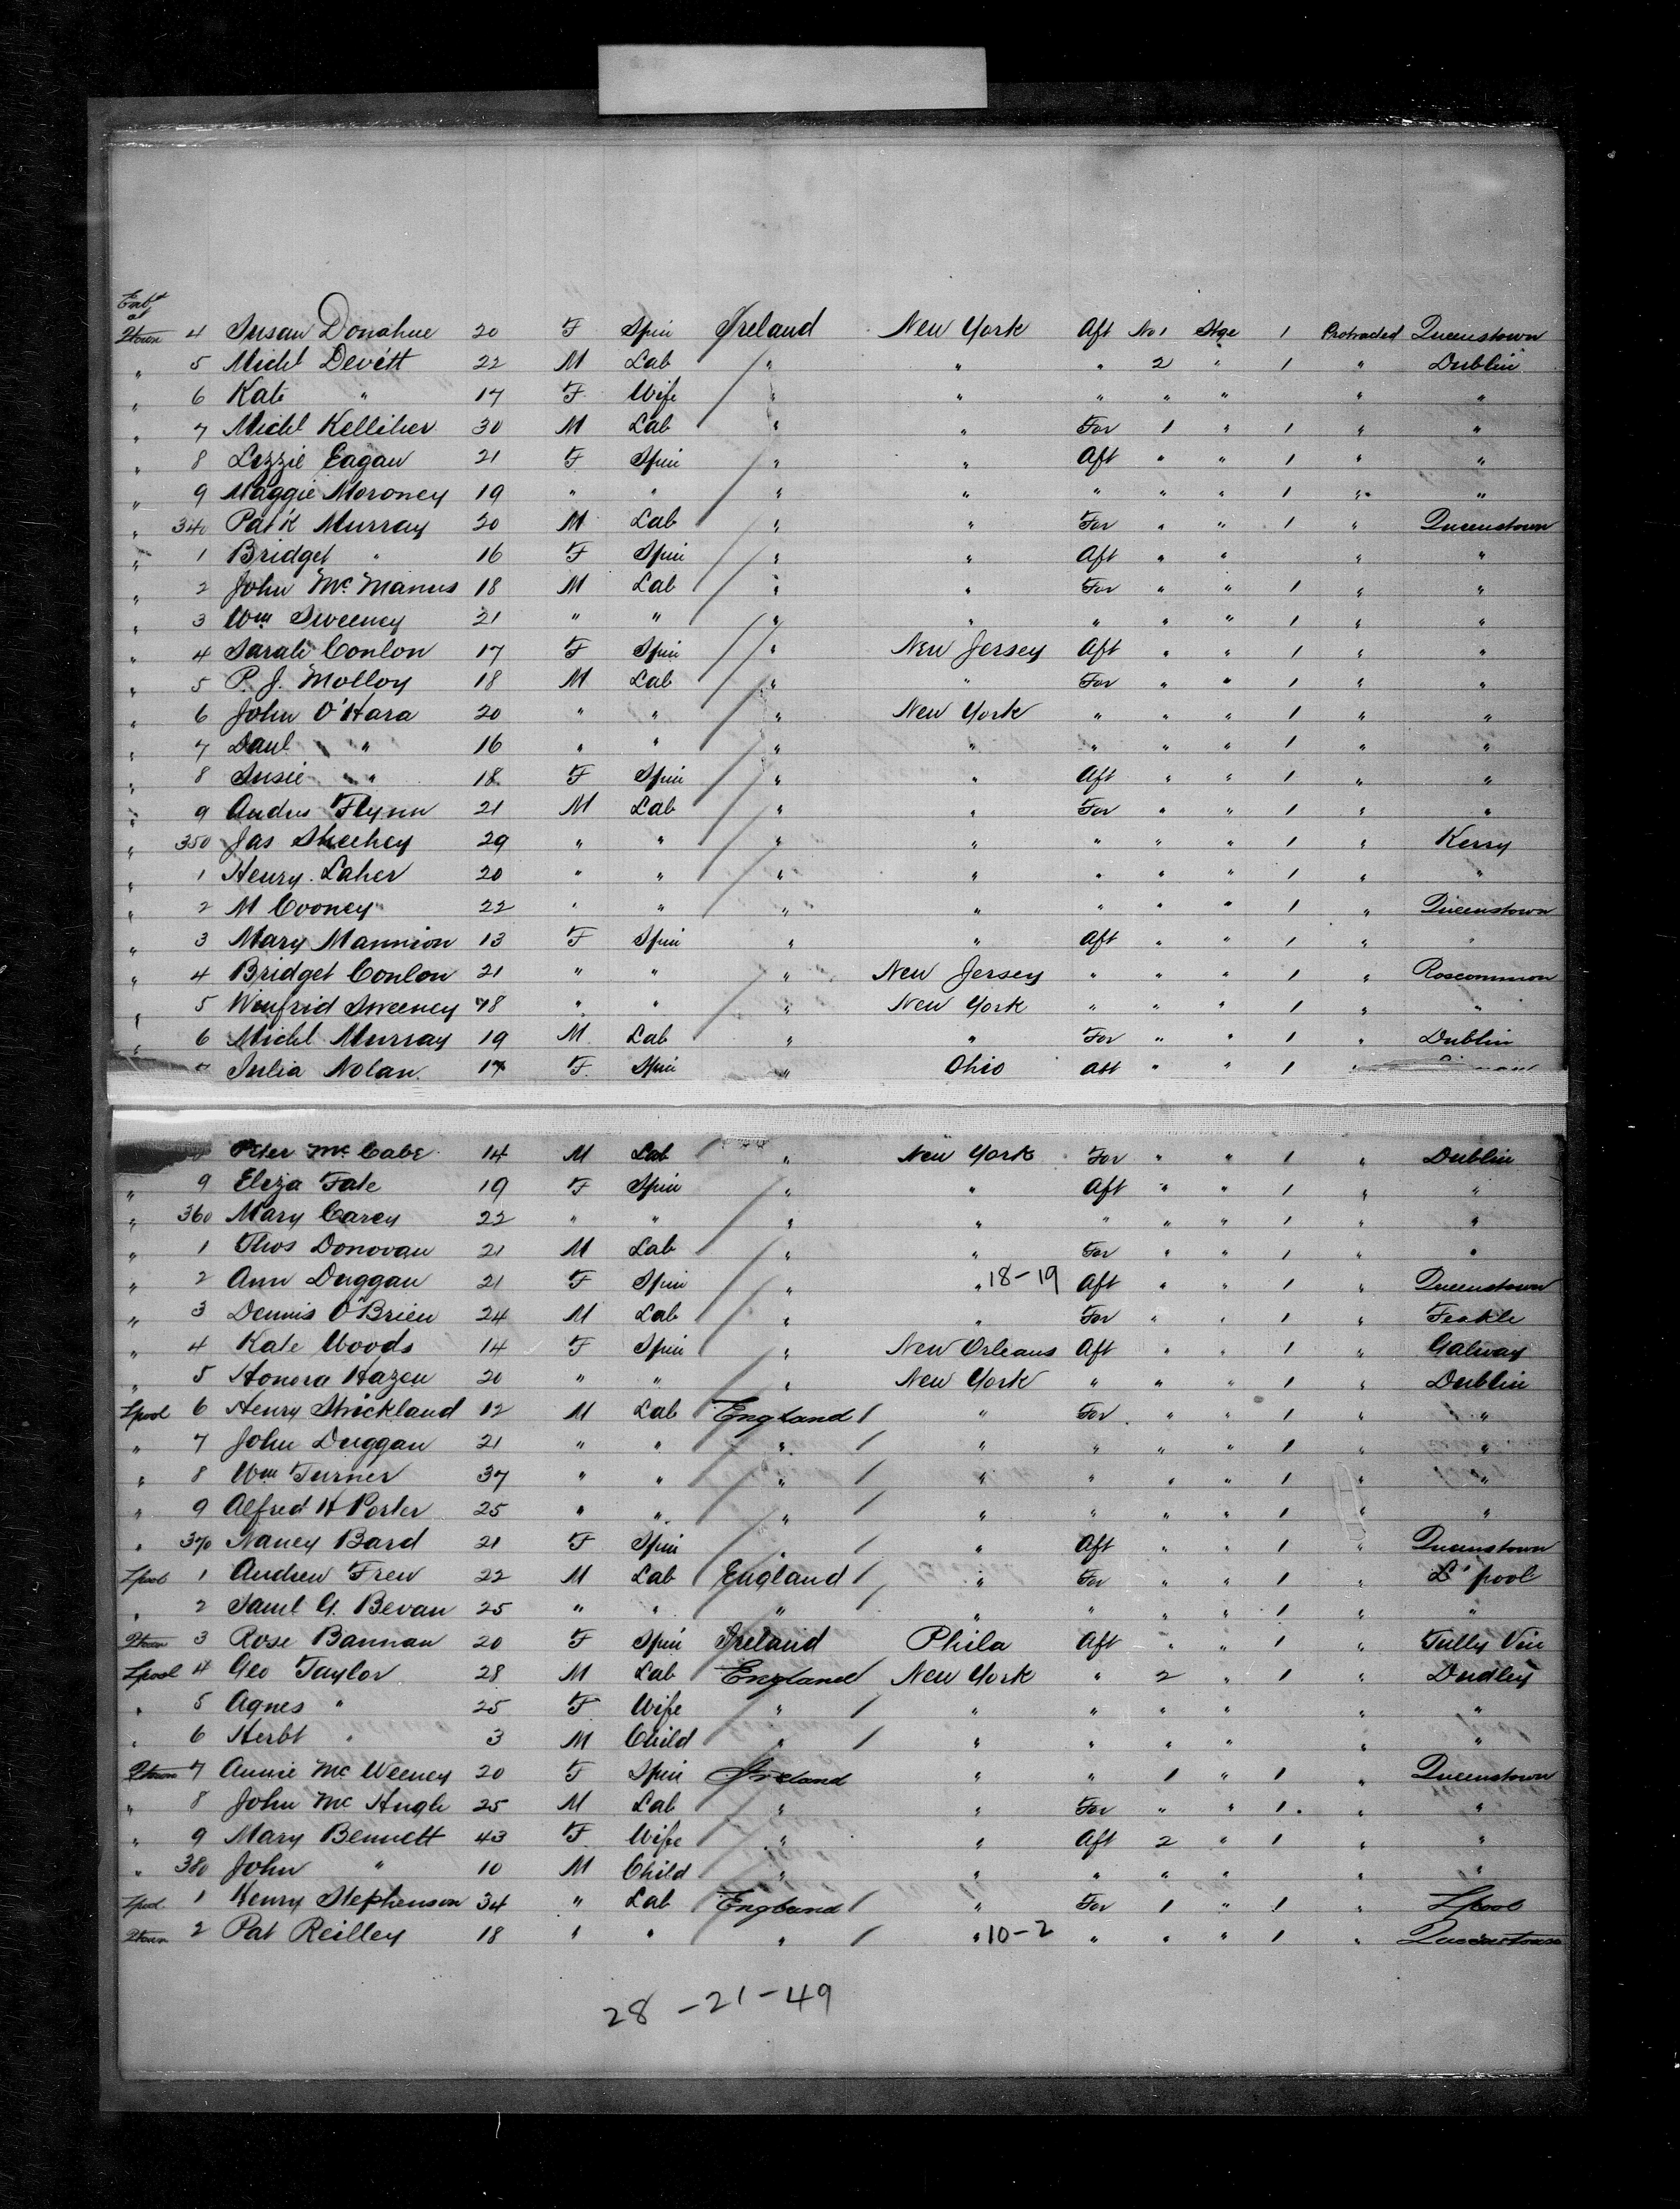 Emb^d
at
Qtown 4 Susan Donahue 20 F Spin Ireland New York Aft No 1 Stge 1 Protracted Queenstown
" 5 Michl Devitt 22 M Lab " " " 2 " 1 " Dublin
" 6 Kate " 17 F Wife " " " " " " "
" 7 Michl Kelliher 30 M Lab " " For 1 " 1 " "
" 8 Lizzie Eagan 21 F Spin " " Aft " " 1 " "
" 9 Maggie Moroney 19 " " " " " " " 1 " "
" 340 Patk Murray 20 M Lab " " For " " 1 " Queenstown
" 1 Bridget " 16 F Spin " " Aft " " " "
" 2 John McManus 18 M Lab " " For " " 1 " "
" 3 Wm Sweeney 21 " " " " " " " 1 " "
" 4 Sarah Conlon 17 F Spin " New Jersey Aft " " 1 " "
" 5 P. J. Molloy 18 M Lab " " For " " 1 " "
" 6 John O'Hara 20 " " " New York " " " 1 " "
" 7 Danl " 16 " " " " " " " 1 " "
" 8 Susie " 18 F Spin " " Aft " " 1 " "
" 9 Andw Flynn 21 M Lab " " For " " 1 " "
" 350 Jas Sheehey 29 " " " " " " " 1 " Kerry
" 1 Henry Laher 20 " " " " " " " 1 " "
" 2 M Cooney 22 " " " " " " " 1 " Queenstown
" 3 Mary Mannion 13 F Spin " " Aft " " 1 " "
" 4 Bridget Conlon 21 " " " New Jersey " " " 1 " Roscommon
" 5 Winfrid Sweeney 18 " " " New York " " " 1 " "
" 6 Michl Murray 19 M Lab " " For " " 1 " Dublin
Julia Nolan 17 F Spin " Ohio Aft " " 1 "
Peter McCabe 14 M Lab " New York For " " 1 " Dublin
" 9 Eliza Fate 19 F Spin " " Aft " " 1 " "
" 360 Mary Carey 22 " " " " " " " 1 " "
" 1 Thos Donovan 21 M Lab " " For " " 1 " "
" 2 Ann Duggan 21 F Spin " " 18-19 Aft " " 1 " Queenstown
" 3 Dennis O'Brien 24 M Lab " " For " " 1 " Feakle
" 4 Kate Woods 14 F Spin " New Orleans Aft " " 1 " Galway
" 5 Honora Hazen 20 " " " New York " " " 1 " Dublin
Lpool 6 Henry Strickland 12 M Lab England " For " " 1 " "
" 7 John Duggan 21 " " " " " " " 1 " "
" 8 Wm Turner 37 " " " " " " " 1 " "
" 9 Alfred H Porter 25 " " " " " " " 1 " "
" 370 Nancy Bard 21 F Spin " " Aft " " 1 " Queenstown
Lpool 1 Andrew Frew 22 M Lab England " For " " 1 " L'pool
" 2 Saml G. Bevan 25 " " " " " " " 1 " "
Qtown 3 Rose Bannan 20 F Spin Ireland Phila Aft " " 1 " Tully Vin
Lpool 4 Geo Taylor 28 M Lab England New York " 2 " 1 " Dudley
" 5 Agnes " 25 F Wife " " " " " " "
" 6 Herbt " 3 M Child " " " " " " "
Qtown 7 Annie McWeeney 20 F Spin Ireland " " 1 " 1 " Queenstown
" 8 John McHugh 25 M Lab " " For " " 1 " "
" 9 Mary Bennett 43 F Wife " " Aft 2 " 1 " "
" 380 John " 10 M Child " " " " " " "
Lpool 1 Henry Stephenson 34 " Lab England " For 1 " 1 " Lpool
Qtown 2 Pat Reilley 18 " " " " 10-2 " " " 1 " Queenstown
28-21-49